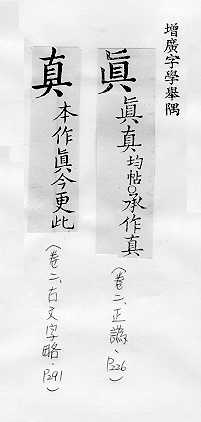 增廣字學舉隅
眞 眞真均帖○承作真
(卷二、正譌、P226)
真 本作眞今更此
(卷二、古文字略、P291)